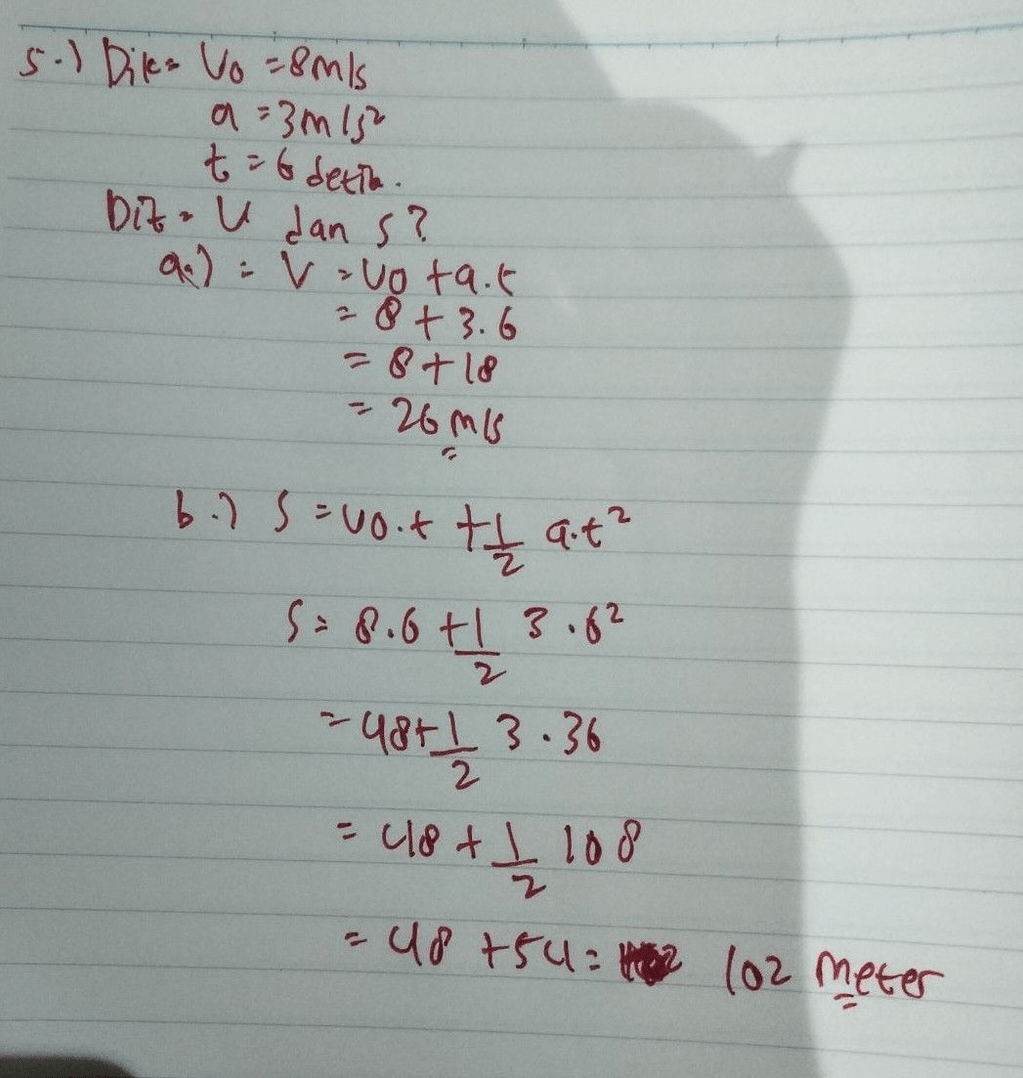 5.) Dik= Vo = 8 m/s
a = 3 m/s²
t = 6 detik.
Dit = V dan s?
a.) = V = Vo + a.t
= 8 + 3.6
= 8 + 18
= 26 m/s
b.) S = Vo.t + 1/2 a.t²
S = 8.6 + 1/2 3.6²
= 48 + 1/2 3.36
= 48 + 1/2 108
= 48 + 54 = 102 meter